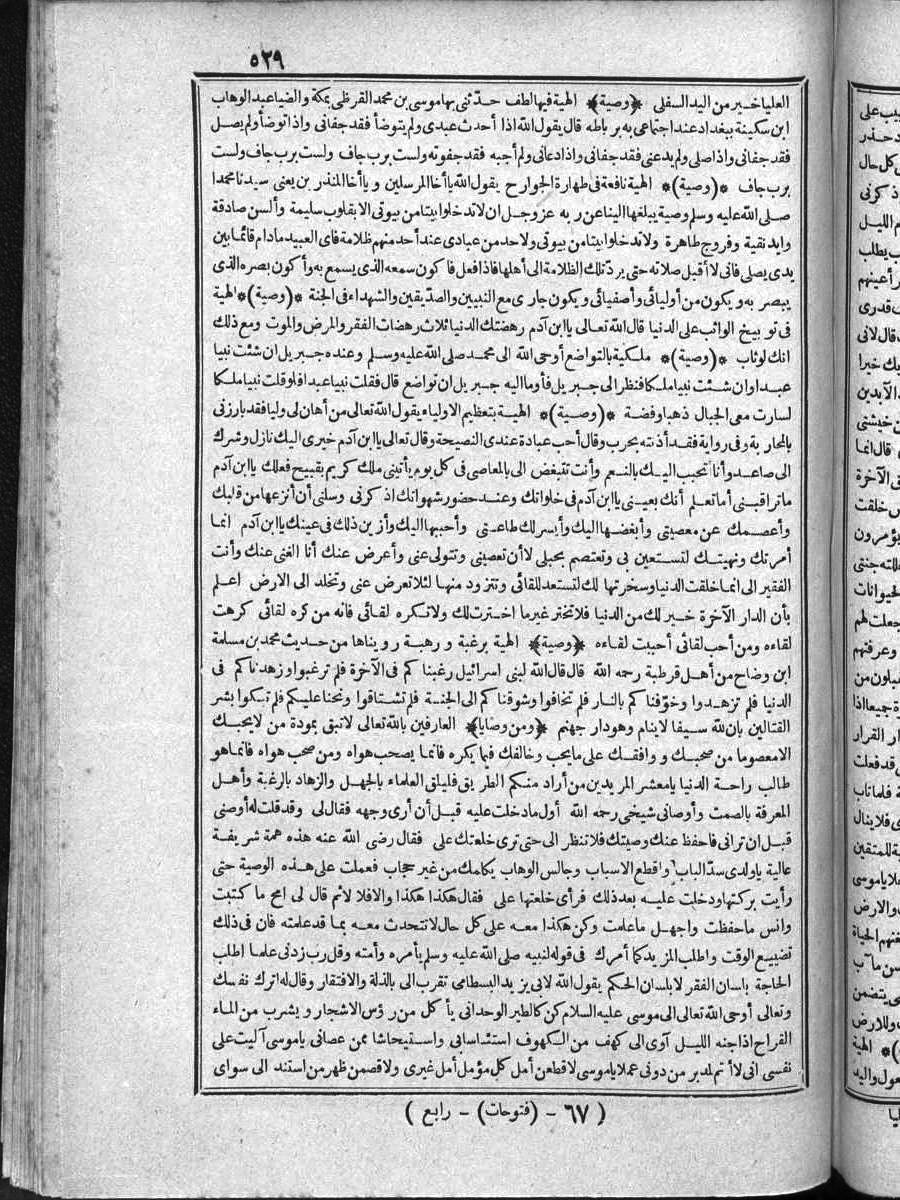 ٥٢٩
العليا خير من اليد السفلى ﴿وصية﴾ الهية فيها لطف حدّثنى بها موسى بن محمد القرظى بمكة والضيا عبد الوهاب
ابن سكينة ببغداد عند اجتماعى به برباطه قال يقول الله اذا أحدث عبدى ولم يتوضأ فقد جفانى واذا توضأ ولم يصل
فقد جفانى واذا صلى ولم يدعنى فقد جفانى واذا دعانى ولم أجبه فقد جفوته ولست برب جاف ولست برب جاف ولست
برب جاف *(وصية)* الهية نافعة فى طهارة الجوارح يقول الله يا أخا المرسلين ويا أخا المنذرين يعنى سيدنا محمدا
صلى الله عليه وسلم وصية يبلغها الينا عن ربه عز وجل ان لا تدخلوا بيتا من بيوتى الا بقلوب سليمة وألسن صادقة
وايد نقية وفروج طاهرة ولا تدخلوا بيتا من بيوتى ولاحد من عبادى عند أحد منهم ظلامة فاى العبيد مادام قائما بين
يدى يصلى فانى لا أقبل صلاته حتى يردّ تلك الظلامة الى أهلها فاذا فعل فأكون سمعه الذى يسمع به وأكون بصره الذى
يبصر به ويكون من أوليائى وأصفيائى ويكون جارى مع النبيين والصدّيقين والشهداء فى الجنة *(وصية)* الهية
فى توبيخ الواثب على الدنيا قال الله تعالى يا ابن آدم رهضتك الدنيا ثلاث رهضات الفقر والمرض والموت ومع ذلك
انك لوثاب *(وصية)* ملكية بالتواضع أوحى الله الى محمد صلى الله عليه وسلم وعنده جبريل ان شئت نبيا
عبدا وان شئت نبيا ملكا فنظر الى جبريل فأوما اليه جبريل ان تواضع قال فقلت نبيا عبدا فلو قلت نبيا ملكا
لسارت معى الجبال ذهبا وفضة *(وصية)* الهية بتعظيم الاولياء يقول الله تعالى من أهان لى وليا فقد بارزنى
بالمحاربة وفى رواية فقد أذنته بحرب وقال أحب عبادة عندى النصيحة وقال تعالى يا ابن آدم خيرى اليك نازل وشرك
الى صاعد وأنا أتحبب اليك بالنعم وأنت تتبغض الى بالمعاصى فى كل يوم يأتينى ملك كريم بقبيح فعلك يا ابن آدم
ما تراقبنى أما تعلم أنك بعينى يا ابن آدم فى خلواتك وعند حضور شهواتك اذكرنى وسلنى أن أنزعها من قلبك
وأعصمك عن معصيتى وأبغضها اليك وأيسر لك طاعتى وأحببها اليك وأزين ذلك فى عينك يا ابن آدم انما
أمرتك ونهيتك لتستعين بى وتعتصم بحبلى لا أن تعصينى وتتولى عنى وأعرض عنك أنا الغنى عنك وأنت
الفقير الى انما خلقت الدنيا وسخرتها لك لتستعد للقائى وتتزود منها لئلا تعرض عنى وتخلد الى الارض اعلم
بأن الدار الآخرة خير لك من الدنيا فلا تختر غير ما اخترت لك ولا تكره لقائى فانه من كره لقائى كرهت
لقاءه ومن أحب لقائى أحببت لقاءه ﴿وصية﴾ الهية برغبة ورهبة رويناها من حديث محمد بن مسلمة
ابن وضاح من أهل قرطبة رحمه الله قال قال الله لبنى اسرائيل رغبناكم فى الآخرة فلم ترغبوا وزهدناكم فى
الدنيا فلم تزهدوا وخوّفناكم بالنار فلم تخافوا وشوقناكم الى الجنة فلم تشتاقوا ونحنا عليكم فلم تبكوا بشر
القتالين بان لله سيفا لا ينام وهو دار جهنم ﴿ومن وصايا﴾ العارفين بالله تعالى لا تبق بمودة من لا يحبك
الا معصوما من صحبك ووافقك على ما يحب وخالفك فيما يكره فانما يصحب هواه ومن صحب هواه فانما هو
طالب راحة الدنيا يا معشر المريدين من أراد منكم الطريق فليلق العلماء بالجهل والزهاد بالرغبة وأهل
المعرفة بالصمت وأوصانى شيخى رحمه الله أول ما دخلت عليه قبل أن أرى وجهه فقال لى وقد قلت له أوصنى
قبل ان ترانى فاحفظ عنك وصيتك فلا تنظر الى حتى ترى خلعتك على فقال رضى الله عنه هذه همة شريفة
عالية يا ولدى سدّ الباب واقطع الاسباب وجالس الوهاب يكلمك من غير حجاب فعملت على هذه الوصية حتى
رأيت بركتها ودخلت عليه بعد ذلك فرأى خلعتها على فقال هكذا هكذا والا فلا لا ثم قال لى امح ما كتبت
وانس ما حفظت واجهل ما علمت وكن هكذا معه على كل حال لا تتحدث معه بما قد علمته فان فى ذلك
تضييع الوقت واطلب المزيد كما أمرك فى قوله لنبيه صلى الله عليه وسلم يأمره وأمته وقل رب زدنى علما اطلب
الحاجة بلسان الفقر لا بلسان الحكم يقول الله لابى يزيد البسطامى تقرب الى بالذلة والافتقار وقال له اترك نفسك
وتعالى أوحى الله تعالى الى موسى عليه السلام كن كالطير الوحدانى يأكل من رؤس الاشجار ويشرب من الماء
القراح اذا جنه الليل آوى الى كهف من الكهوف استئناسا بى واستيحاشا ممن عصانى يا موسى آليت على
نفسى انى لا أتم لمدبر من دونى عملا يا موسى لاقطعن أمل كل مؤمل أمل غيرى ولاقصمن ظهر من استند الى سواى
(٦٧ - (فتوحات) - رابع)